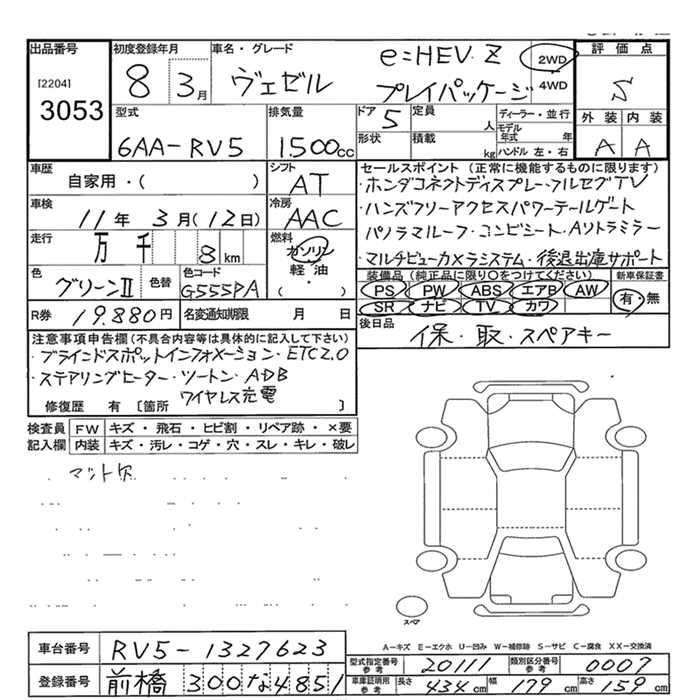 出品番号 初度登録年月 車名・グレード e:HEV Z 2WD 評価点
[2204] 8 3月 ヴェゼル プレイパッケージ 4WD S
3053 型式 排気量 ドア 5 定員 人 ディーラー・並行 外装 内装
6AA-RV5 1500cc 形状 積載 kg モデル年式 年 ハンドル 左・右 A A
車歴 シフト セールスポイント(正常に機能するものに限ります)
自家用・( ) AT ・ホンダコネクトディスプレーフルセグTV
車検 冷房 ・ハンズフリーアクセスパワーテールゲート
11年 3月(12日) AAC パノラマルーフ・コンビシート・Aソトラミラー
走行 万 千 8km 燃料 ガソリン ・マルチビューカメラシステム・後退出庫サポート
軽油・( ) 装備品(純正品に限り○をつけてください) 新車保証書
色 グリーンⅡ 色替 色コード G555PA PS PW ABS エアB AW 有・無
SR ナビ TV カワ
R券 19.880円 名変通知期限 月 日 後日品
注意事項申告欄(不具合内容等は具体的に記入して下さい) 保・取・スペアキー
・ブラインドスポットインフォメーション・ETC2.0
・ステアリングヒーター・ツートン・ADB
ワイヤレス充電
修復歴 有 [箇所 ]
検査員 FW キズ・飛石・ヒビ割・リペア跡・×要
記入欄 内装 キズ・汚レ・コゲ・穴・スレ・キレ・破レ
マット欠
スペア
A=キズ E=エクボ U=凹み W=補修跡 S=サビ C=腐食 XX=交換済
車台番号 RV5-1327623 型式指定番号 参考 20111 類別区分番号 参考 0007
登録番号 前橋 300 な 4851 車庫証明用 参考 長さ 434cm 幅 179cm 高さ 159cm